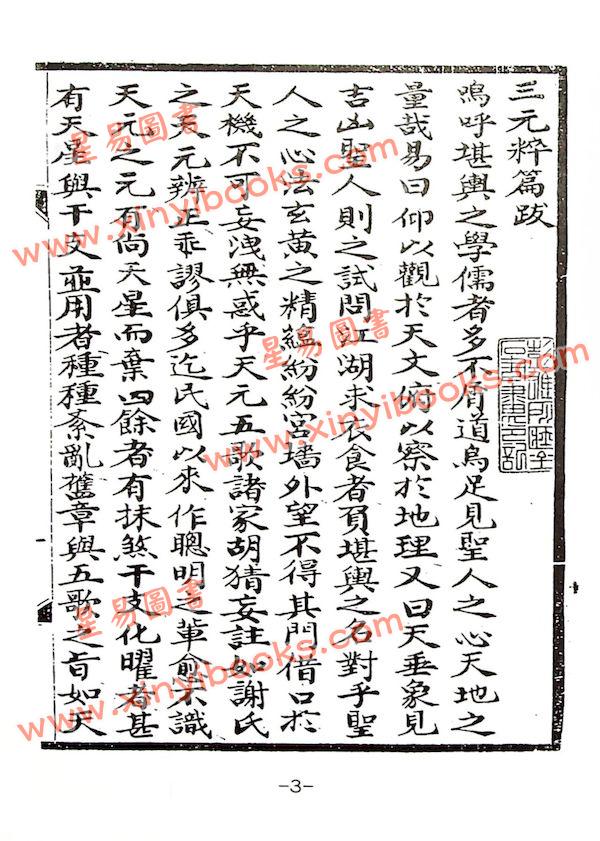 三元粹篇跋
嗚呼堪輿之學儒者多不屑道烏足見聖人之心天地之
量哉易曰仰以觀於天文俯以察於地理又曰天垂象見
吉凶聖人則之試問江湖求衣食者負堪輿之名對乎聖
人之心法玄黃之精蘊紛紛宮墻外望不得其門借口於
天機不可妄洩無惑乎天元五歌諸家胡猜妄註如謝氏
之天元辨正乖謬俱多迄民國以來作聰明之輩俞不識
天元之元有尚天星而棄四餘者有抹煞干支化曜者甚
有天星與干支並用者種種紊亂舊章與五歌之旨如天
星易圖書
www.xinyibooks.com
星易圖書
www.xinyibooks.com
星易圖書
www.xinyibooks.com
-3-